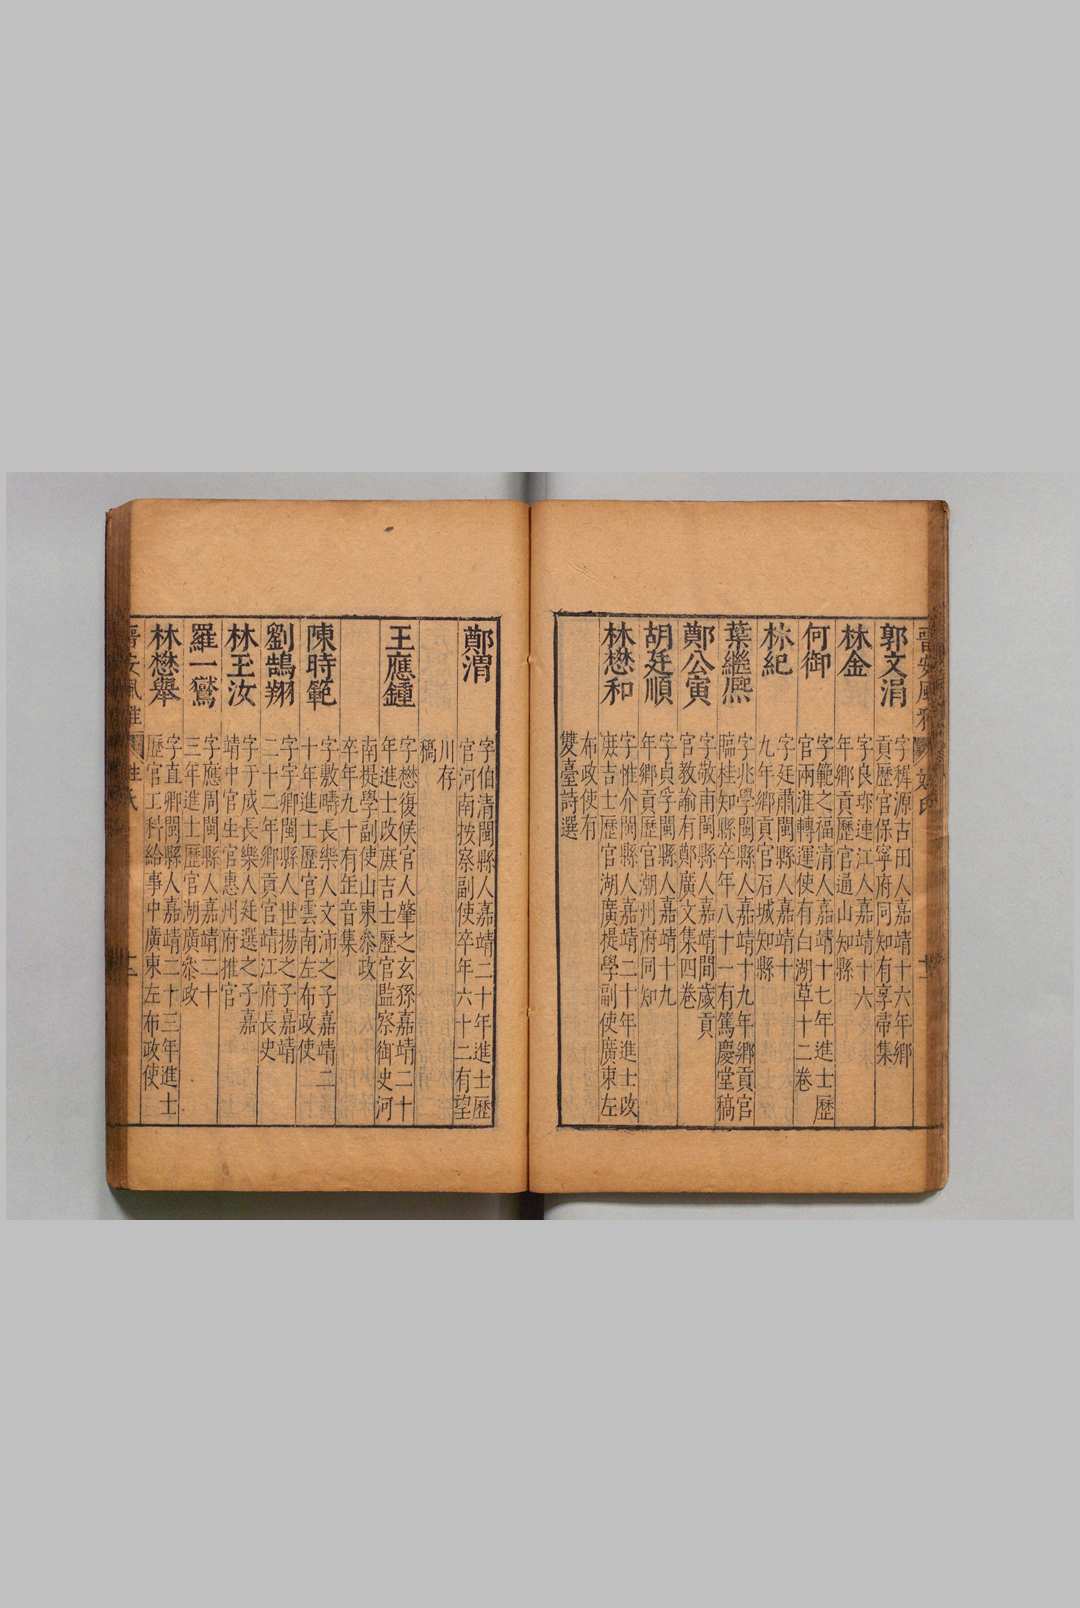 晉安風雅 姓氏 十二
郭文涓
字穉源古田人嘉靖十六年鄉
貢歷官保寧府同知有享帚集
林金
字良珎連江人嘉靖十六
年鄉貢歷官通山知縣
何御
字範之福清人嘉靖十七年進士歷
官兩淮轉運使有白湖草十二卷
林紀
字廷肅閩縣人嘉靖十
九年鄉貢官石城知縣
葉繼熈
字兆學閩縣人嘉靖十九年鄉貢官
臨桂知縣卒年八十一有篤慶堂稿
鄭公寅
字敬甫閩縣人嘉靖間歲貢
官教諭有鄭廣文集四卷
胡廷順
字貞孚閩縣人嘉靖十九
年鄉貢歷官潮州府同知
林懋和
字惟介閩縣人嘉靖二十年進士改
庶吉士歷官湖廣提學副使廣東左
布政使有
雙臺詩選
鄭㵢
字伯清閩縣人嘉靖二十年進士歷
官河南按察副使卒年六十二有望
川存
稿
王應鍾
字懋復候官人肇之玄孫嘉靖二十
年進士改庶吉士歷官監察御史河
南提學副使山東叅政
卒年九十有缶音集
陳時範
字敷疇長樂人文沛之子嘉靖二
十年進士歷官雲南左布政使
劉鵠翔
字宇卿閩縣人世揚之子嘉靖
二十二年鄉貢官靖江府長史
林王汝
字于成長樂人廷選之子嘉
靖中官生官惠州府推官
羅一鸑
字應周閩縣人嘉靖二十
三年進士歷官湖廣叅政
林懋舉
字直卿閩縣人嘉靖二十三年進士
歷官工科給事中廣東左布政使
晉安風雅 姓氏 十三